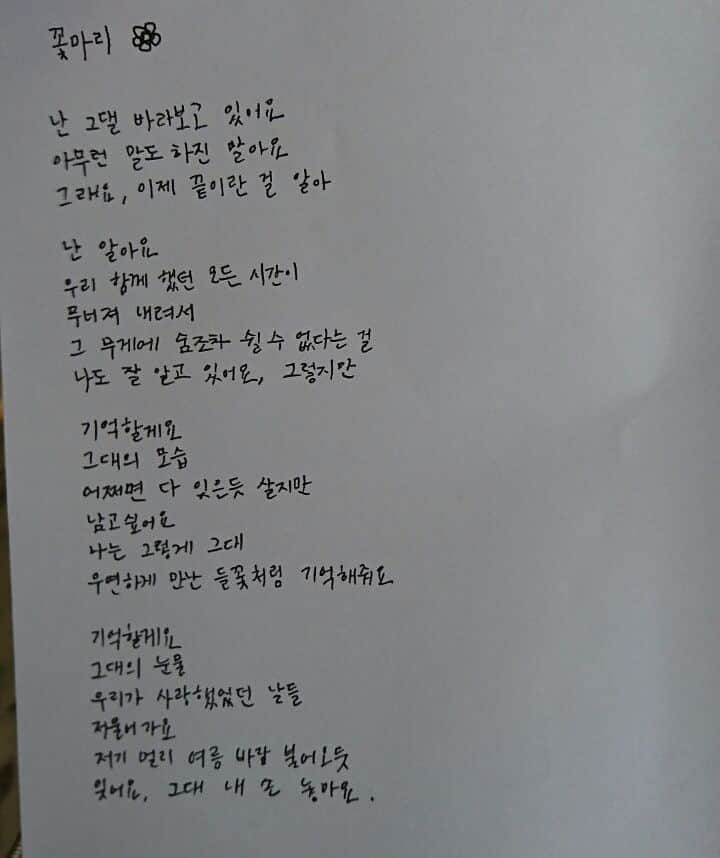 꽃마리
난 그댈 바라보고 있어요
아무런 말도 하진 말아요
그래요, 이제 끝이란 걸 알아
난 알아요
우리 함께 했던 모든 시간이
무너져 내려서
그 무게에 숨조차 쉴 수 없다는 걸
나도 잘 알고 있어요, 그렇지만
기억할게요
그대의 모습
어쩌면 다 잊은듯 살지만
남고싶어요
나는 그렇게 그대
우연하게 만난 들꽃처럼 기억해줘요
기억할게요
그대의 눈물
우리가 사랑했었던 날들
저물어가요
저기 멀리 여름 바람 불어오듯
잊어요, 그대 내 손 놓아요.